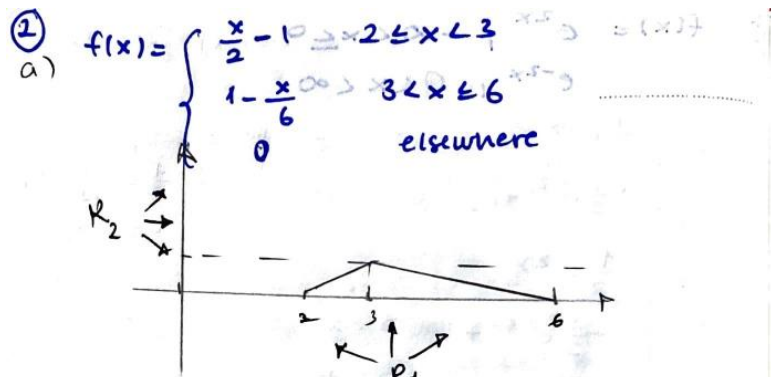 2
a) f(x) = { x/2 - 1   2 ≤ x < 3
1 - x/6   3 < x ≤ 6
0   elsewhere
R2
2   3   6